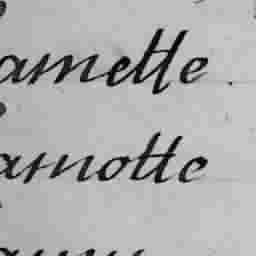 amette.
arnotte